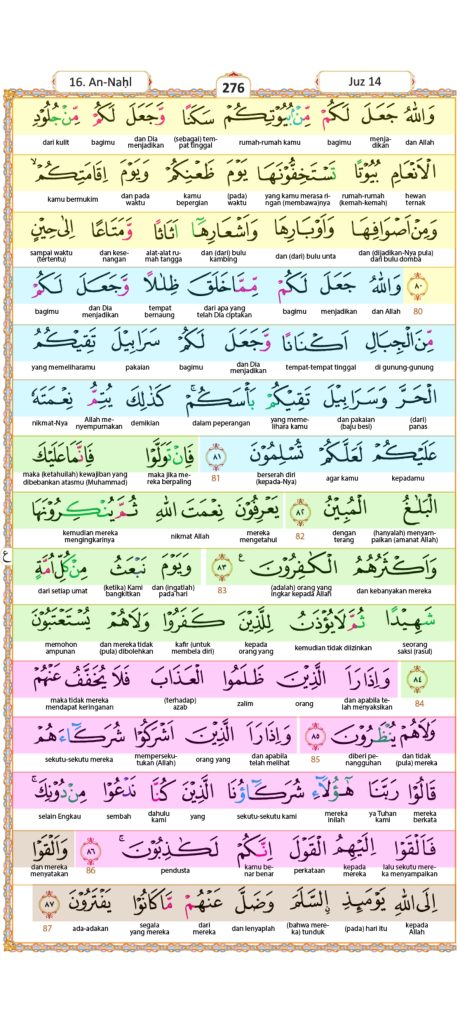 16. An-Naḥl 276 Juz 14
وَاللّٰهُ جَعَلَ لَكُمْ مِّنْۢ بُيُوْتِكُمْ سَكَنًا وَّجَعَلَ لَكُمْ مِّنْ جُلُوْدِ
dan Allah menja-dikan bagimu rumah-rumah kamu (sebagai) tem-pat tinggal dan Dia menjadikan bagimu dari kulit
الْاَنْعَامِ بُيُوْتًا تَسْتَخِفُّوْنَهَا يَوْمَ ظَعْنِكُمْ وَيَوْمَ اِقَامَتِكُمْ ۙ
hewan ternak rumah-rumah (kemah-kemah) yang kamu merasa ri-ngan (membawa)nya (pada) waktu kamu bepergian dan pada waktu kamu bermukim
وَمِنْ اَصْوَافِهَا وَاَوْبَارِهَا وَاَشْعَارِهَآ اَثَاثًا وَّمَتَاعًا اِلٰى حِيْنٍ
dan (dijadikan-Nya pula) dari bulu domba dan (dari) bulu unta dan (dari) bulu kambing alat-alat ru-mah tangga dan kese-nangan sampai waktu (tertentu)
٨٠ وَاللّٰهُ جَعَلَ لَكُمْ مِّمَّا خَلَقَ ظِلٰلًا وَّجَعَلَ لَكُمْ
80 dan Allah menjadikan bagimu dari apa yang telah Dia ciptakan tempat bernaung dan Dia menjadikan bagimu
مِّنَ الْجِبَالِ اَكْنَانًا وَّجَعَلَ لَكُمْ سَرَابِيْلَ تَقِيْكُمُ
di gunung-gunung tempat-tempat tinggal dan Dia menjadikan bagimu pakaian yang memeliharamu
الْحَرَّ وَسَرَابِيْلَ تَقِيْكُمْ بَأْسَكُمْ ۚ كَذٰلِكَ يُتِمُّ نِعْمَتَهٗ
(dari) panas dan pakaian (baju besi) yang meme-lihara kamu dalam peperangan demikian Allah me-nyempurnakan nikmat-Nya
عَلَيْكُمْ لَعَلَّكُمْ تُسْلِمُوْنَ ٨١ فَاِنْ تَوَلَّوْا فَاِنَّمَا عَلَيْكَ
kepadamu agar kamu berserah diri (kepada-Nya) 81 maka jika me-reka berpaling maka (ketahuilah) kewajiban yang dibebankan atasmu (Muhammad)
الْبَلٰغُ الْمُبِيْنُ ٨٢ يَعْرِفُوْنَ نِعْمَتَ اللّٰهِ ثُمَّ يُنْكِرُوْنَهَا
(hanyalah) menyam-paikan (amanat Allah) dengan terang 82 mereka mengetahui nikmat Allah kemudian mereka mengingkarinya
وَاَكْثَرُهُمُ الْكٰفِرُوْنَ ࣖ ٨٣ وَيَوْمَ نَبْعَثُ مِنْ كُلِّ اُمَّةٍ ع
dan kebanyakan mereka (adalah) orang yang ingkar kepada Allah 83 dan (ingatlah) pada hari (ketika) Kami bangkitkan dari setiap umat
شَهِيْدًا ثُمَّ لَا يُؤْذَنُ لِلَّذِيْنَ كَفَرُوْا وَلَا هُمْ يُسْتَعْتَبُوْنَ
seorang saksi (rasul) kemudian tidak diizinkan kepada orang yang kafir (untuk membela diri) dan mereka tidak (pula) dibolehkan memohon ampunan
٨٤ وَاِذَا رَاَ الَّذِيْنَ ظَلَمُوا الْعَذَابَ فَلَا يُخَفَّفُ عَنْهُمْ
84 dan apabila te-lah menyaksikan orang zalim (terhadap) azab maka tidak mereka mendapat keringanan
وَلَا هُمْ يُنْظَرُوْنَ ٨٥ وَاِذَا رَاَ الَّذِيْنَ اَشْرَكُوْا شُرَكَاۤءَهُمْ
dan tidak (pula) mereka diberi pe-nangguhan 85 dan apabila telah melihat orang yang mempersеku-tukan (Allah) sekutu-sekutu mereka
قَالُوْا رَبَّنَا هٰٓؤُلَاۤءِ شُرَكَاۤؤُنَا الَّذِيْنَ كُنَّا نَدْعُوْا مِنْ دُوْنِكَ ۚ
mereka berkata ya Tuhan kami mereka inilah sekutu-sekutu kami yang dahulu kami sembah selain Engkau
فَاَلْقَوْا اِلَيْهِمُ الْقَوْلَ اِنَّكُمْ لَكٰذِبُوْنَ ۚ ٨٦ وَاَلْقَوْا
lalu sekutu mere-ka menyampaikan kepada mereka perkataan kamu be-nar benar pendusta 86 dan mereka menyatakan
اِلَى اللّٰهِ يَوْمَىِٕذِ ِۨالسَّلَمَ وَضَلَّ عَنْهُمْ مَّا كَانُوْا يَفْتَرُوْنَ ٨٧
kepada Allah (pada) hari itu (bahwa mere-ka) tunduk dan lenyaplah dari mereka segala yang mereka ada-adakan 87